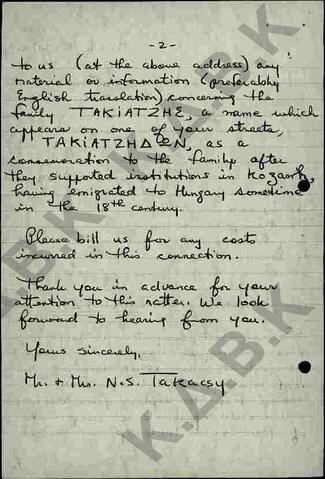 - 2 -
to us (at the above address) any
material or information (preferably
English translation) concering the
family TAKIATZHΣ, a name which
appears on one of your streets,
TAKIATZHΔΩN, as a
consemoration to the family after
they supported institutions in Kozani,
having emigrated to Hungary sometime
in the 18th century.
Please bill us for any costs
incurred in this connection.
Thank you in advance for your
attention to this matter. We look
forward to hearing from you.
Yours sincerely,
Mr. + Mrs. N.S. Takacsy
Κ.Δ.Β.Κ
Κ.Δ.Β.Κ